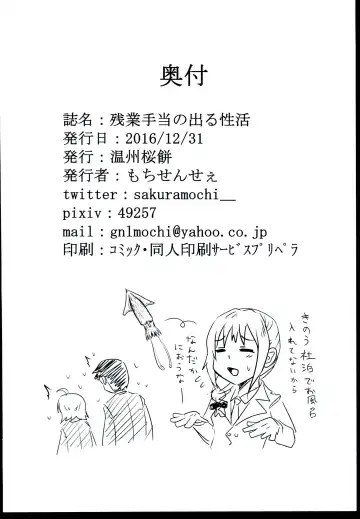 奥付
誌名：残業手当の出る性活
発行日：2016/12/31
発行：温州桜餅
発行者：もちせんせぇ
twitter：sakuramochi__
pixiv：49257
mail：gnlmochi@yahoo.co.jp
印刷：ｺﾐｯｸ・同人印刷ｻｰﾋﾞｽﾌﾟﾘﾍﾟﾗ
きのう社泊でお風呂
入れてないから
なんだか
におうなー